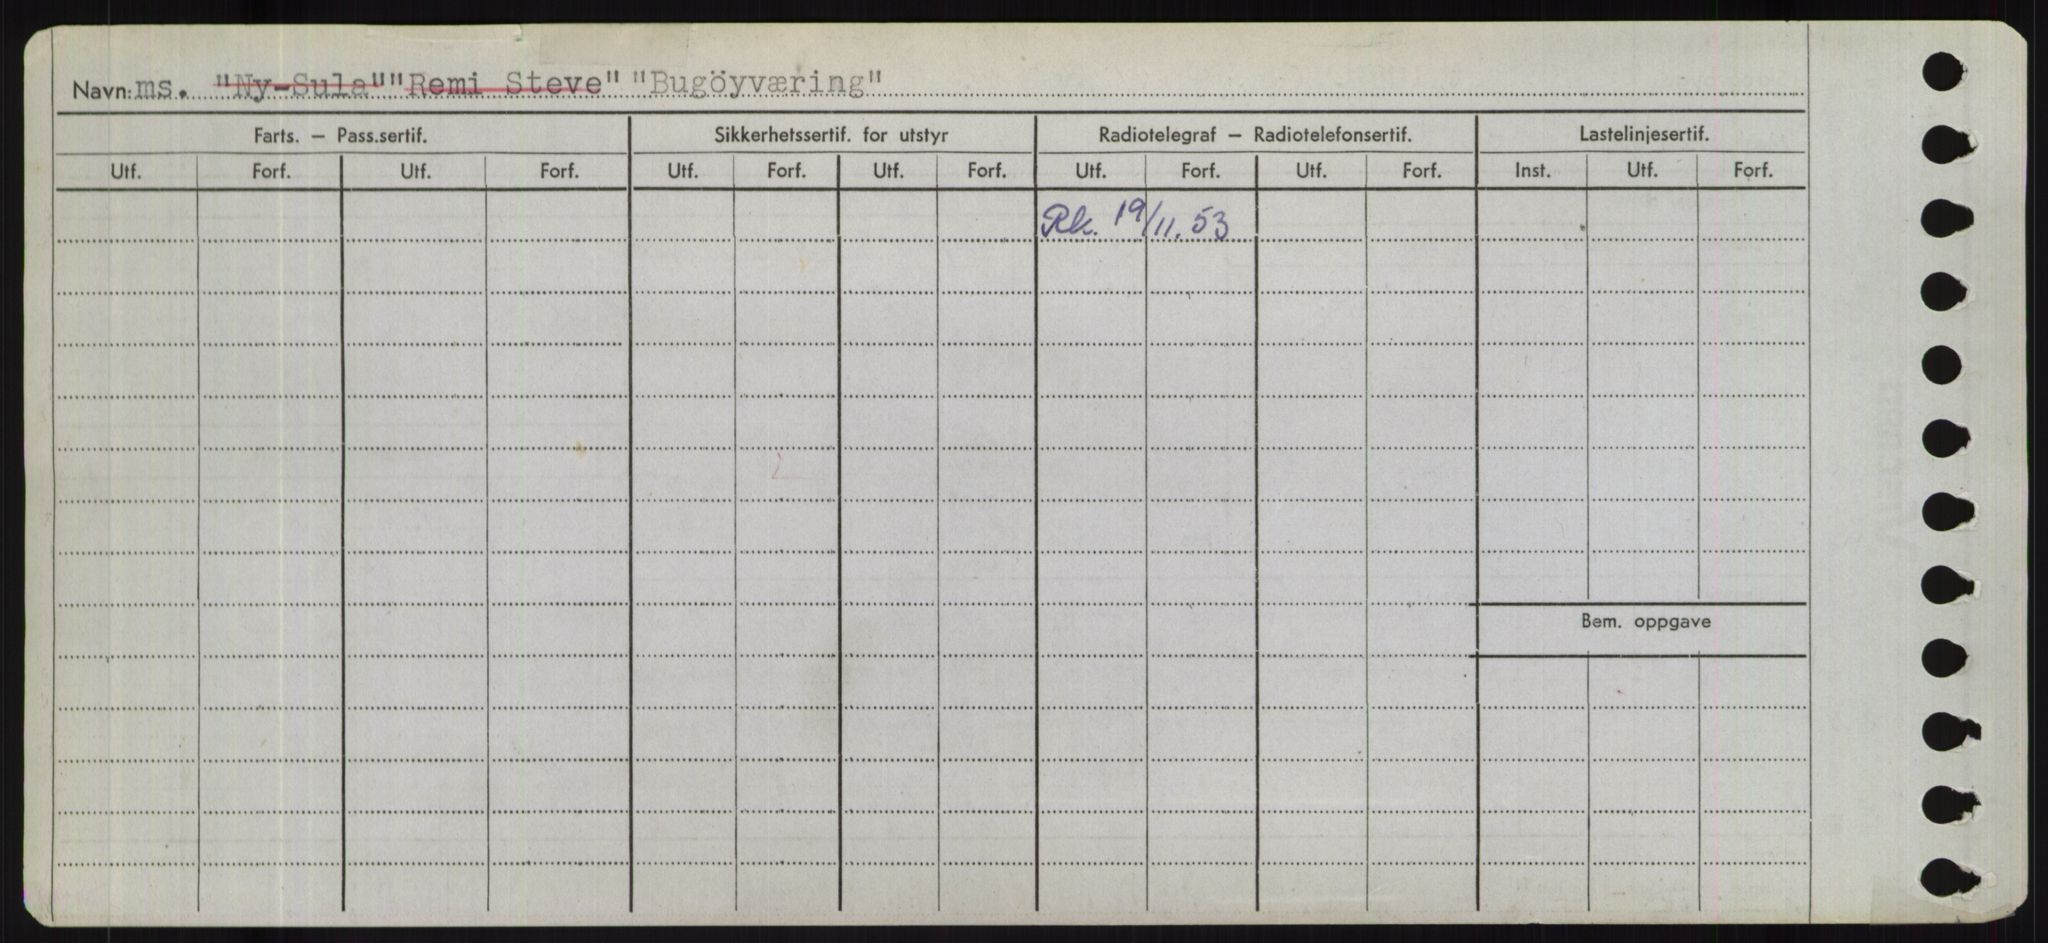 Navn: ms. "Ny-Sula" "Remi Steve" "Bugöyværing"
Farts. — Pass.sertif. Sikkerhetssertif. for utstyr Radiotelegraf — Radiotelefonsertif. Lastelinjesertif.
Utf. Forf. Utf. Forf. Utf. Forf. Utf. Forf. Utf. Forf. Utf. Forf. Inst. Utf. Forf.
Rk. 19/11. 53
Bem. oppgave